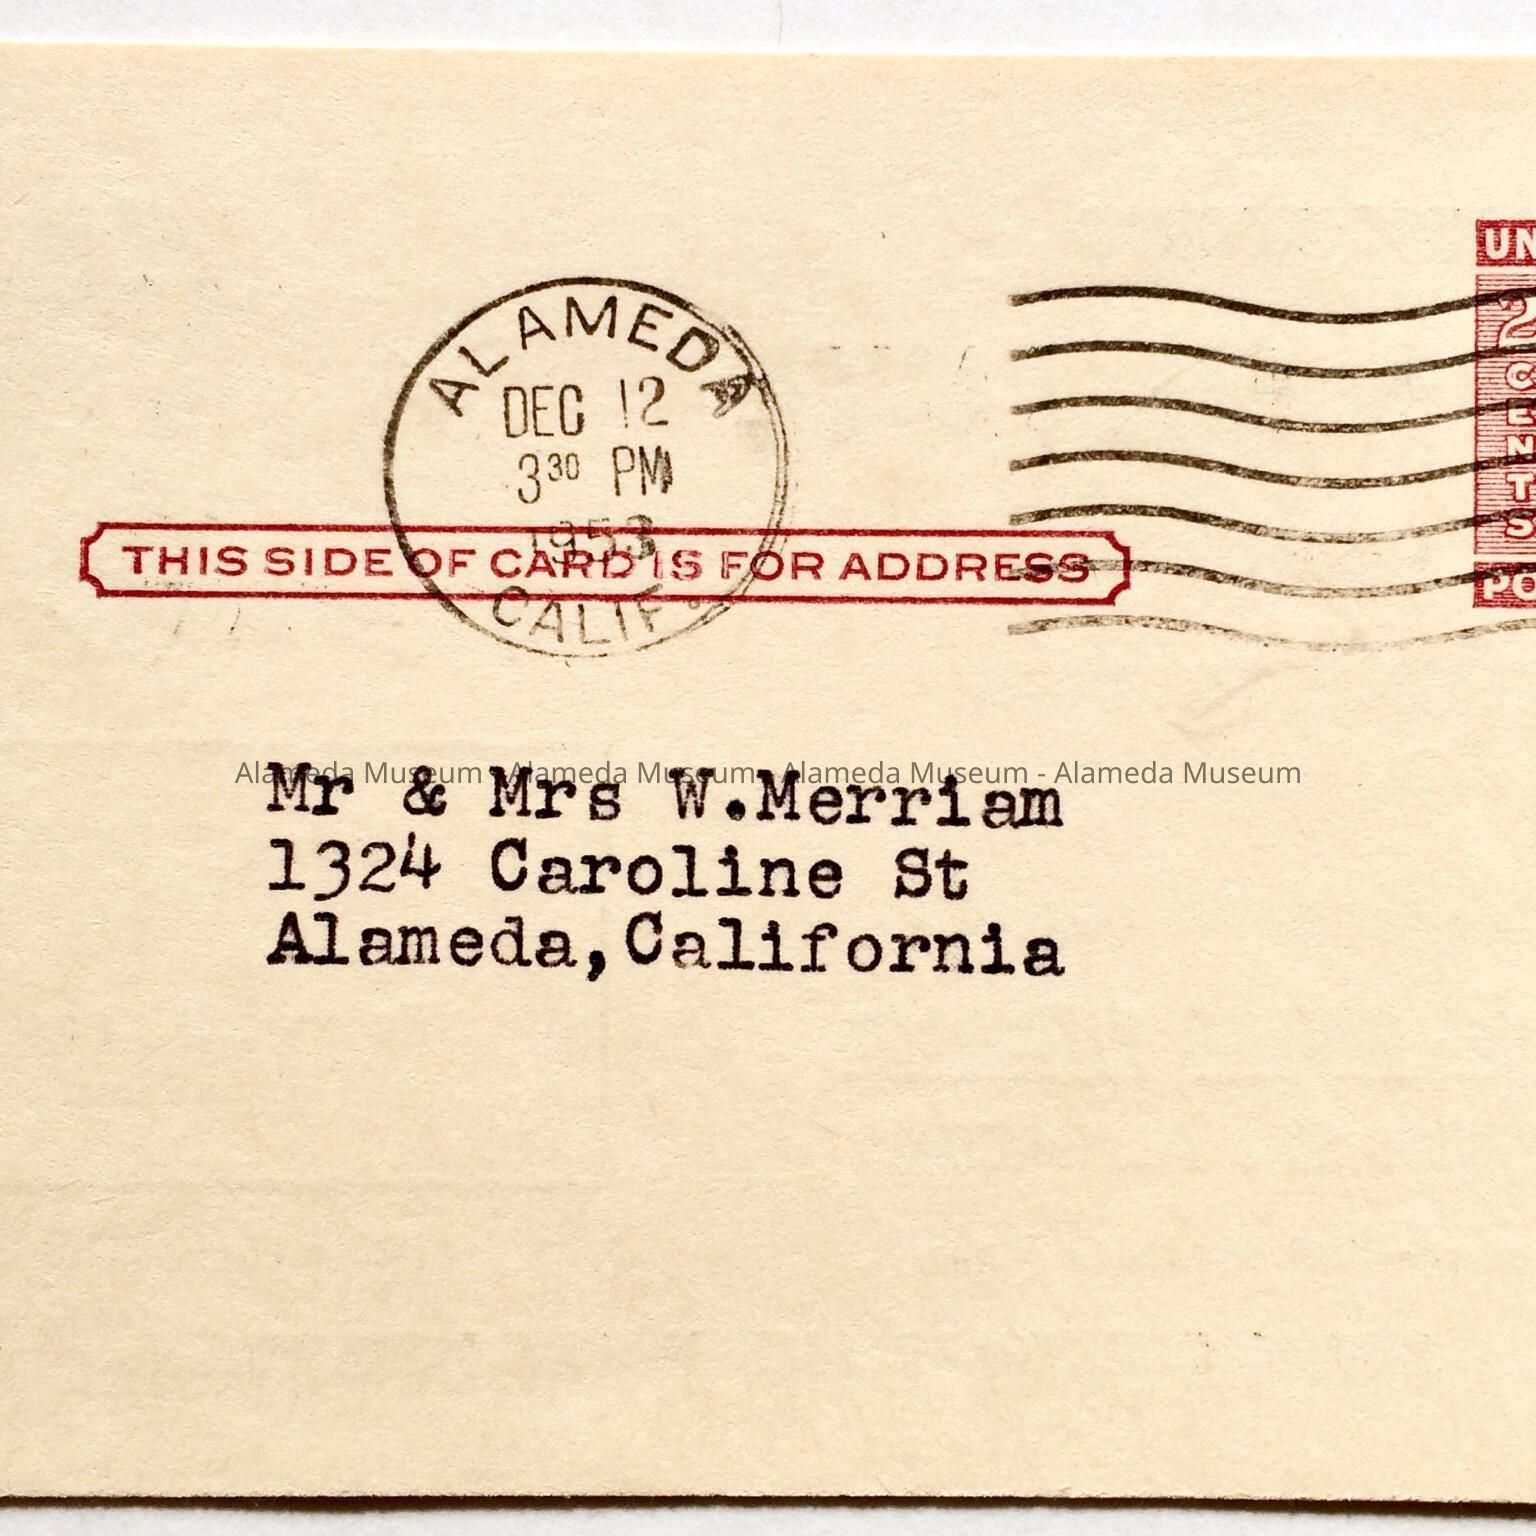 ALAMEDA
DEC 12
3³⁰ PM
1953
CALIF.
UN
2
CENTS
PO
THIS SIDE OF CARD IS FOR ADDRESS
Alameda Museum - Alameda Museum - Alameda Museum - Alameda Museum
Mr & Mrs W.Merriam
1324 Caroline St
Alameda,California